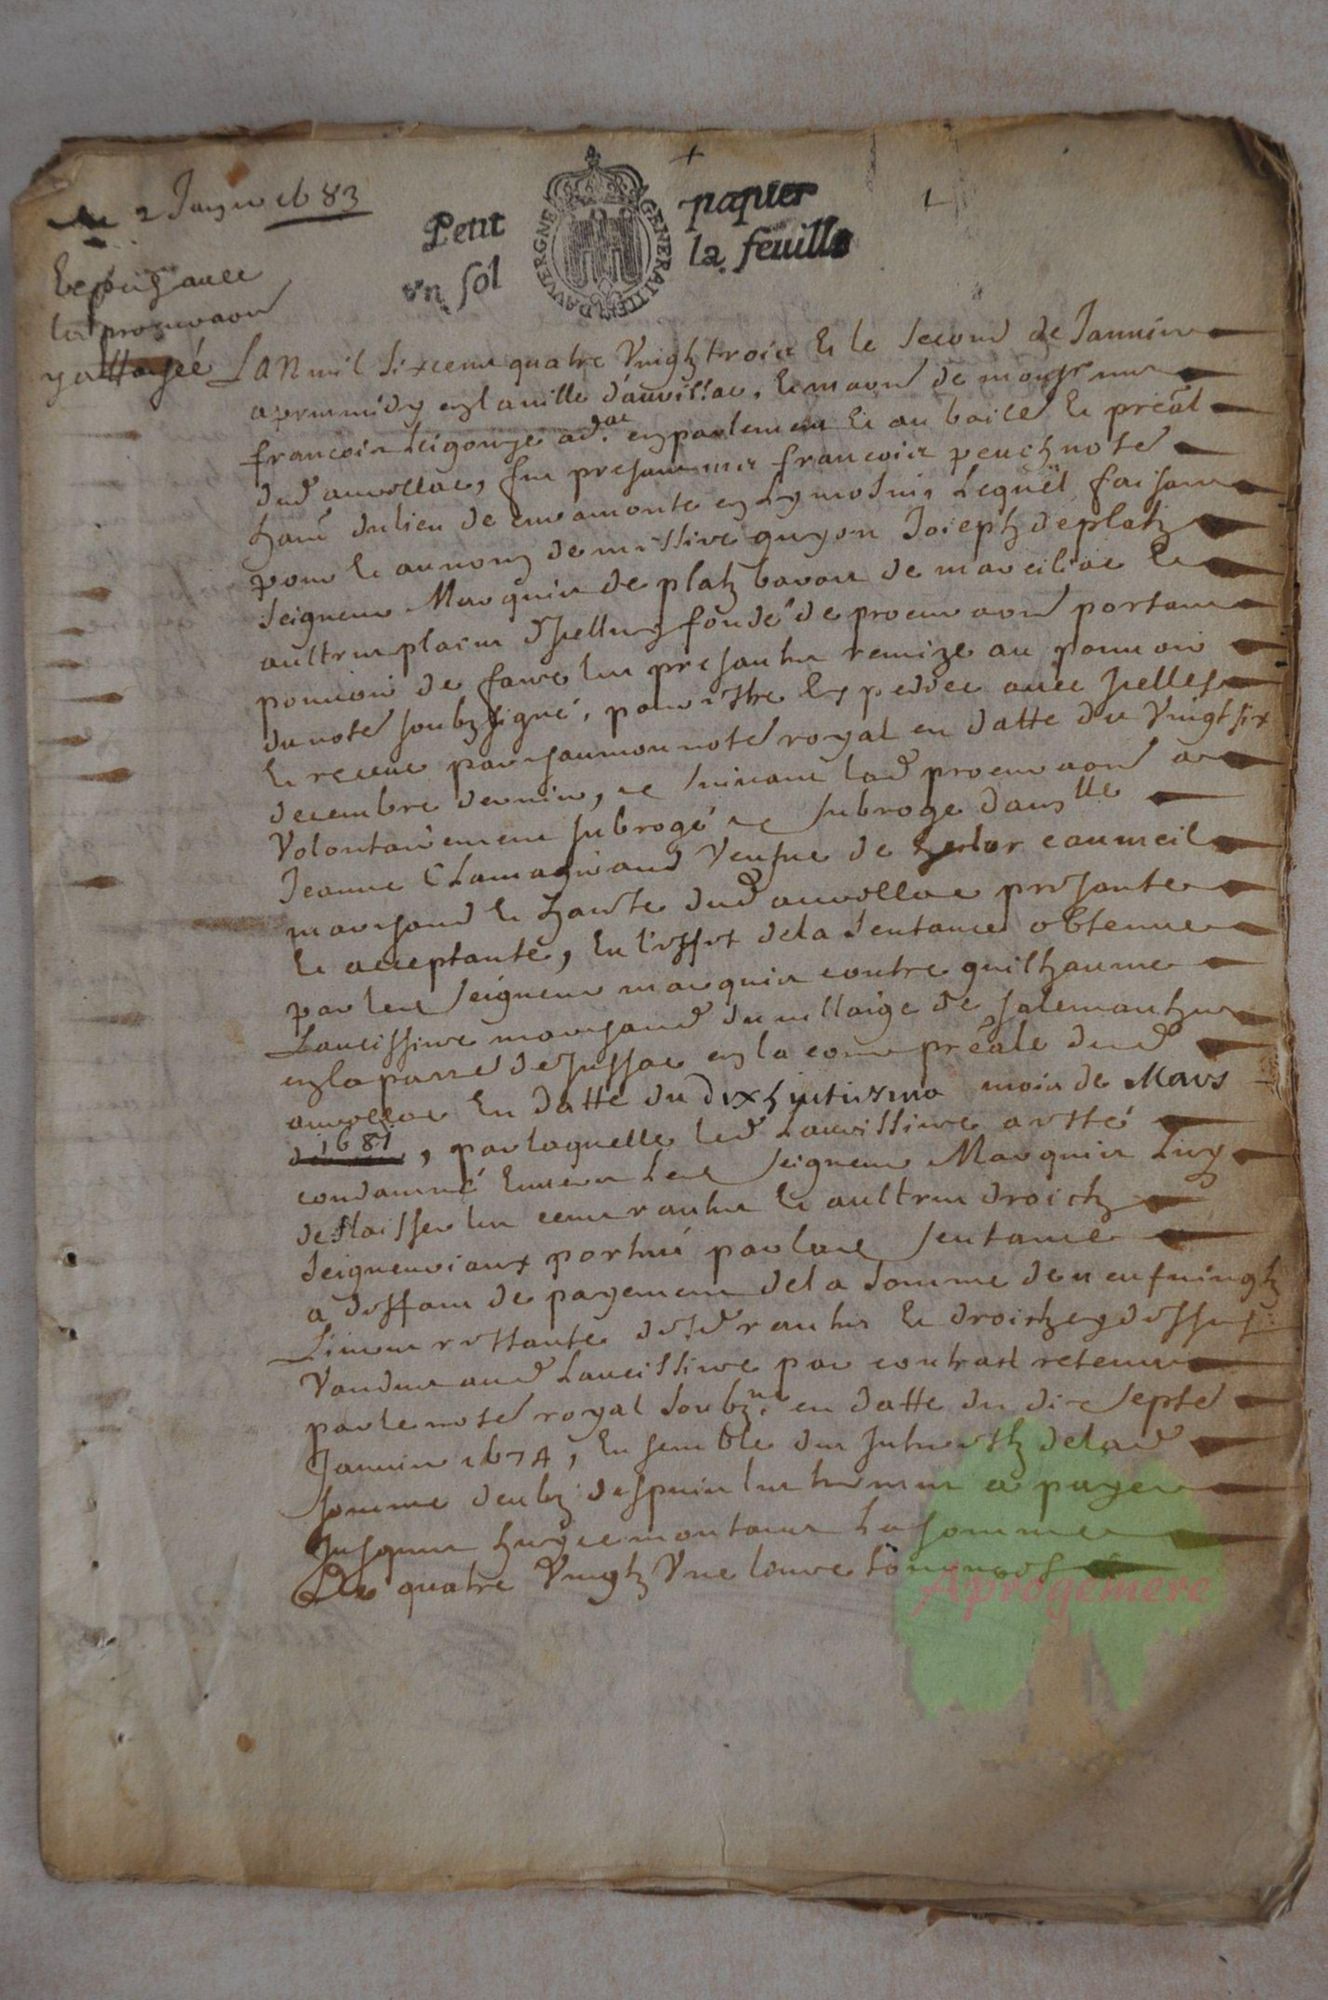 2 Janvier 1683
Petit papier
un sol la feuille
D'AUVERGNE GENERALITE
Expedié avec
la procuraon
y attagée
L'AN mil six cens quatre vingtz trois et le second de Janvier
apres midy en la ville d'auvillac, maison de
francois Ligonze ad. en parlement et au baile et preal
dud auvillac, fut present me francois peuch note
hant du lieu de en Lymosin, Lequel faisant
pour et au nom de messire guyon Joseph de platz
seigneur Marquis de platz baron de marcillac et
aultres places d'Icelluy fondé de procuraon portant
pouvoir de faire les presantes remize au pouvoir
du note soubzsigné, pour estre expediée avec Icelles
et receue par note royal en datte du vingt six
decembre dernier, et suivant lad procuraon a
volontairement subrogé et subroge dam.lle
Jeanne veufve de
marchand et hante dud auvillac presante
et acceptante, En l'effet de la sentance obtenue
par led seigneur marquis contre guilhaume
Laveissiere marchand du villaige de
en la parre de Jussac en la cour preale dud
auvillac En datte du dixhuitiesme mois de Mars
1681, par laquelle led Laveissiere a esté
condamné Envers led seigneur Marquis Luy
deslaisser les cens rantes et aultres droictz
seigneuriaux portés par lad sentance
a deffaut de payement de la somme de neuf vingtz
Livres restante desd rantes et droictz y dessus
vandus aud Laveissiere par contrat retenu
par le note royal soubz.né en datte du dix septe
Janvier 1674, Ensemble des Intherestz de lad
somme deubz despuis les termes a payer
Jusques huy montans La somme
De quatre vingtz une livre
Aprogemere